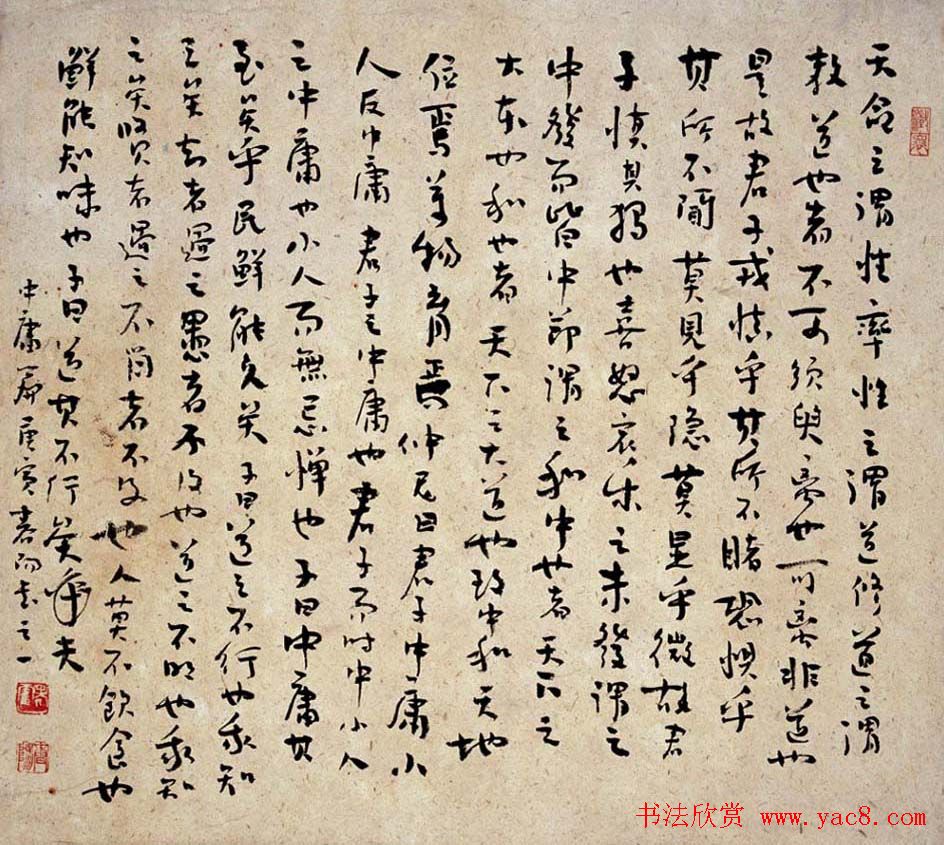 天命之謂性率性之謂道修道之謂
教道也者不可須臾離也可離非道也
是故君子戒慎乎其所不睹恐懼乎
其所不聞莫見乎隐莫显乎微故君
子慎其獨也喜怒哀乐之未發謂之
中發而皆中節謂之和中也者天下之
大本也和也者天下之大道也致中和天地
位焉萬物育焉仲尼曰君子中庸小
人反中庸君子之中庸也君子而时中小人
之中庸也小人而無忌憚也子曰中庸其
至矣乎民鮮能久矣子曰道之不行也我知
之矣知者過之愚者不及也道之不明也我知
之矣賢者過之不肖者不及也人莫不飲食也
鮮能知味也子曰道其不行矣夫
中庸
书法欣赏 www.yac8.com